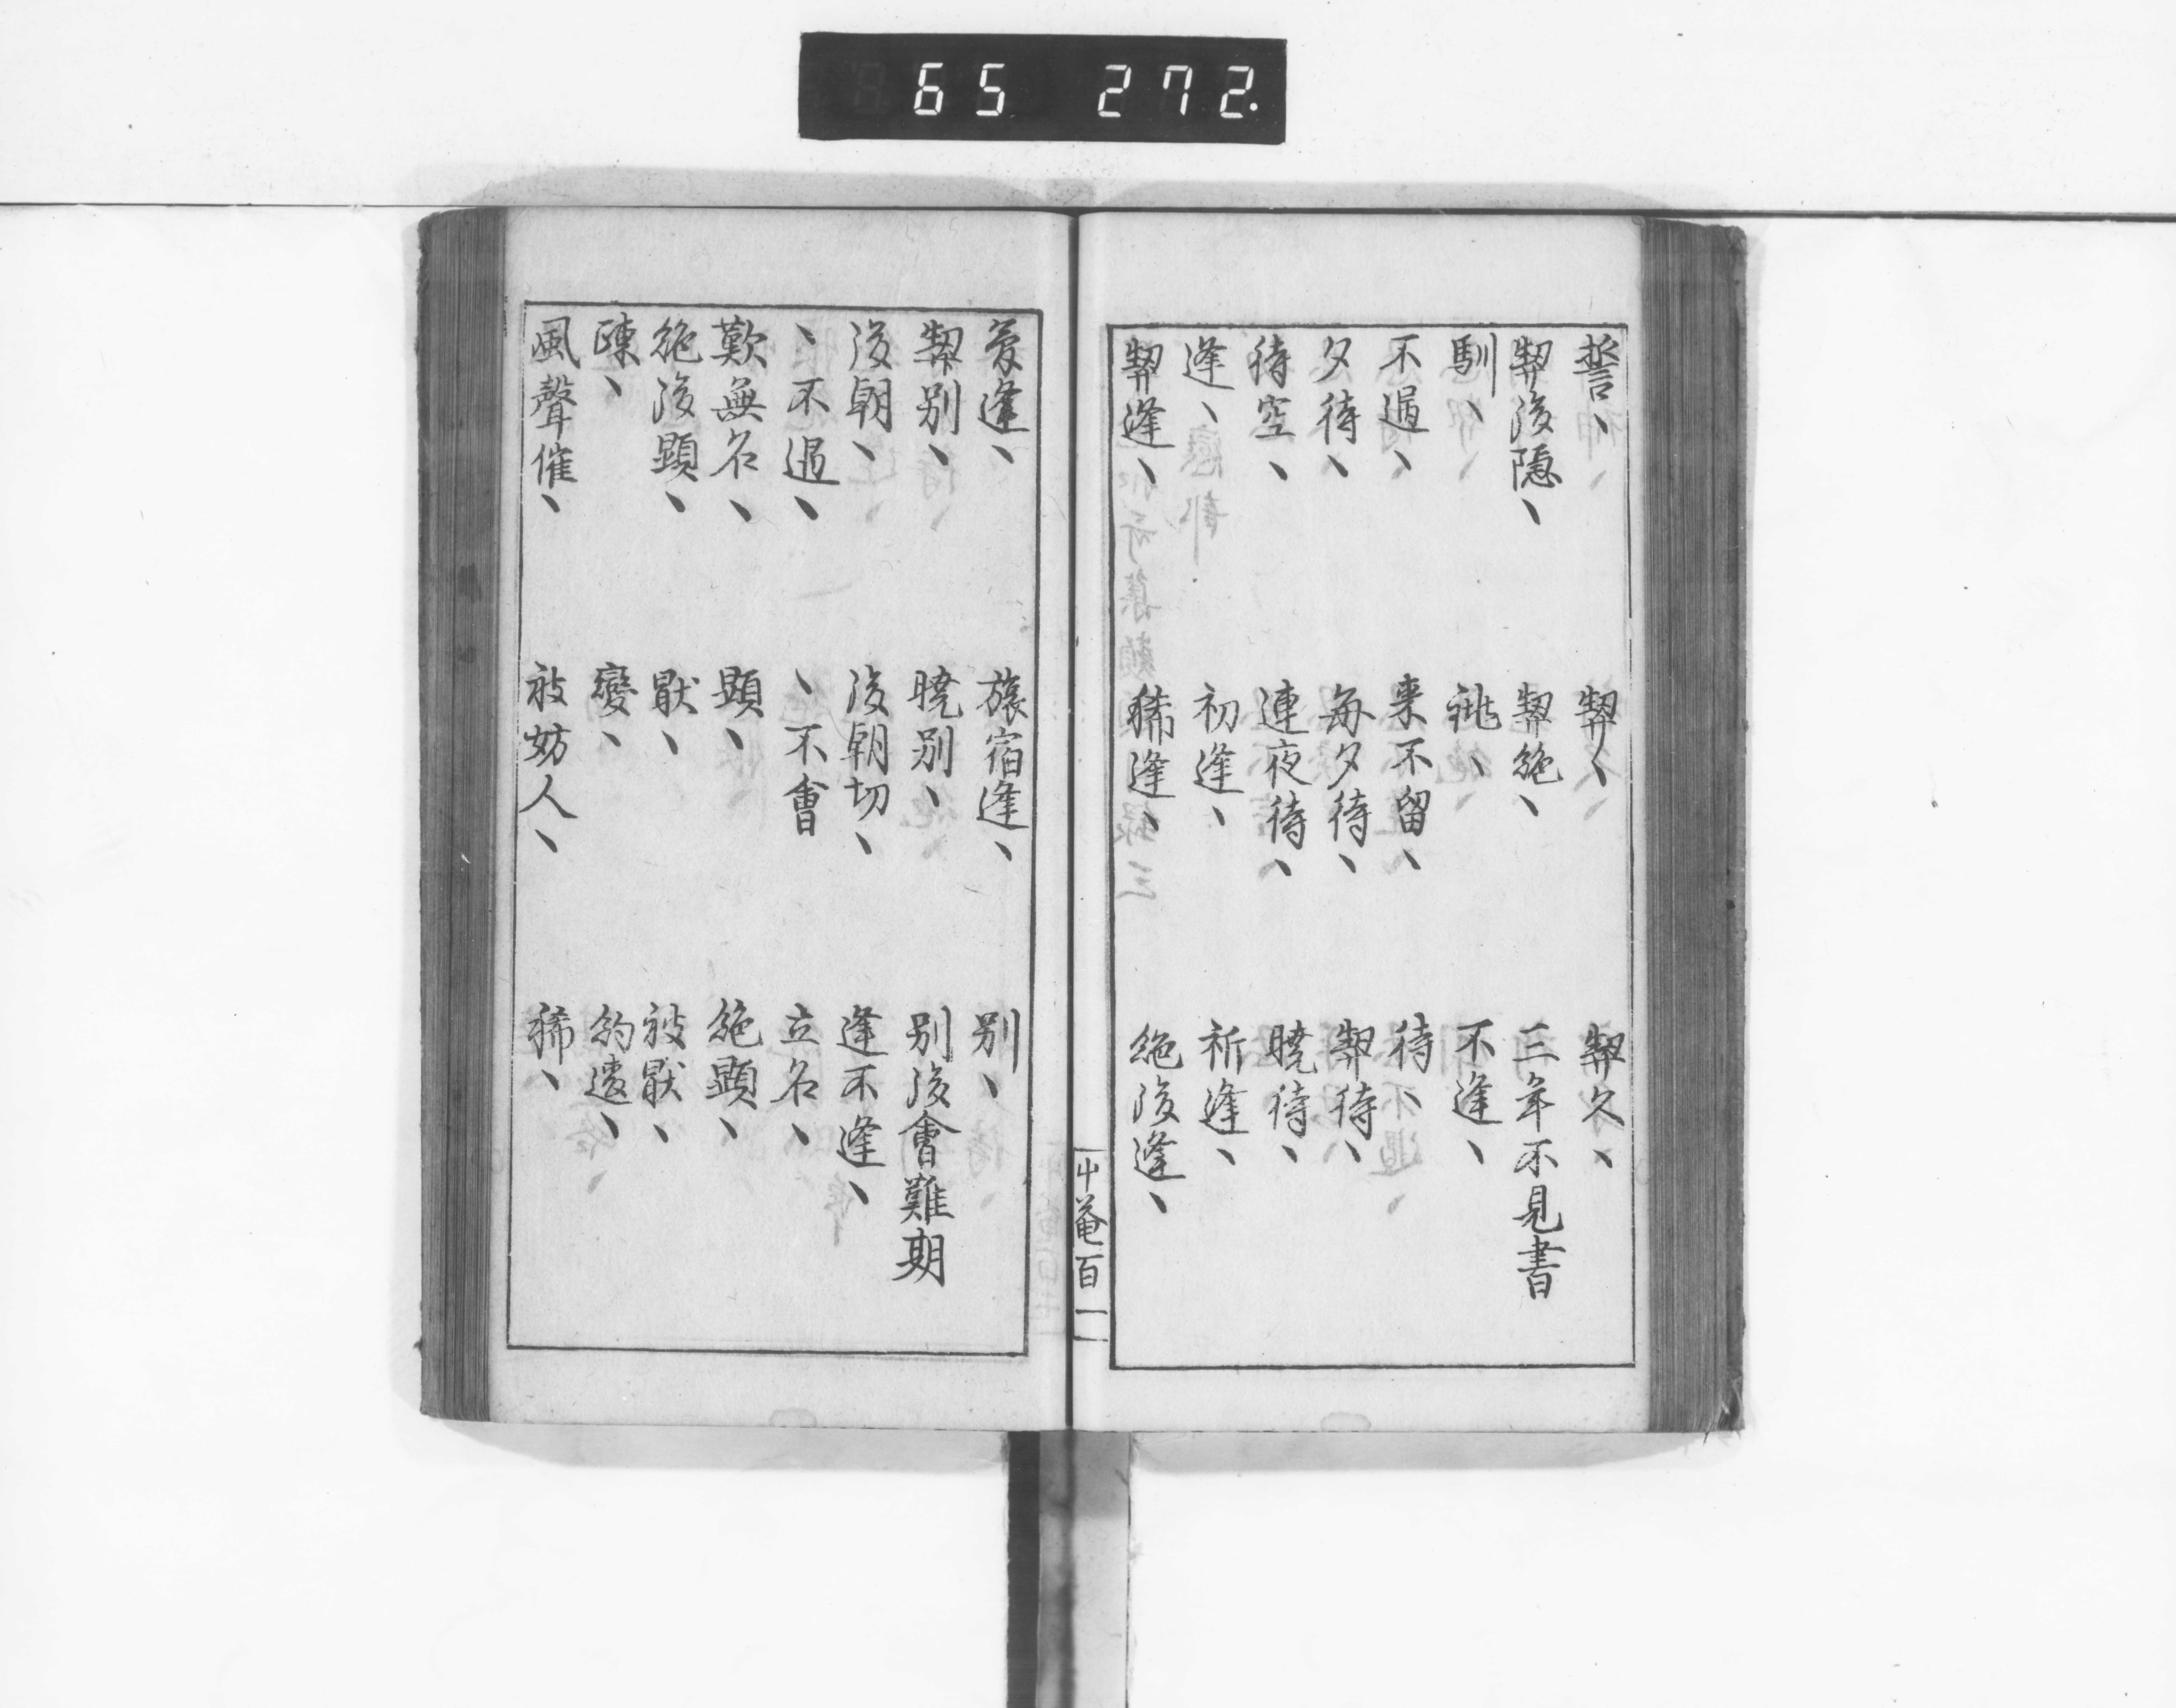 65 272.
誓、 契、 契久、
契後隠、 契絶、 三年不見書
馴、 祧、 不逢、
不過、 来不留、 待、
夕待、 毎夕待、 契待、
待空、 連夜待、 暁待、
逢、 初逢、 祈逢、
契逢、 稀逢、 絶後逢、
中菴百一
旅宿逢、 別、
契別、 暁別、 別後會難期
後朝、 後朝切、 逢不逢、
、不過、 、不會 立名、
歎無名、 顕、 絶顕、
絶後顕、 厭、 被厭、
疎、 變、 約違、
風聲催、 被妨人、 稀、